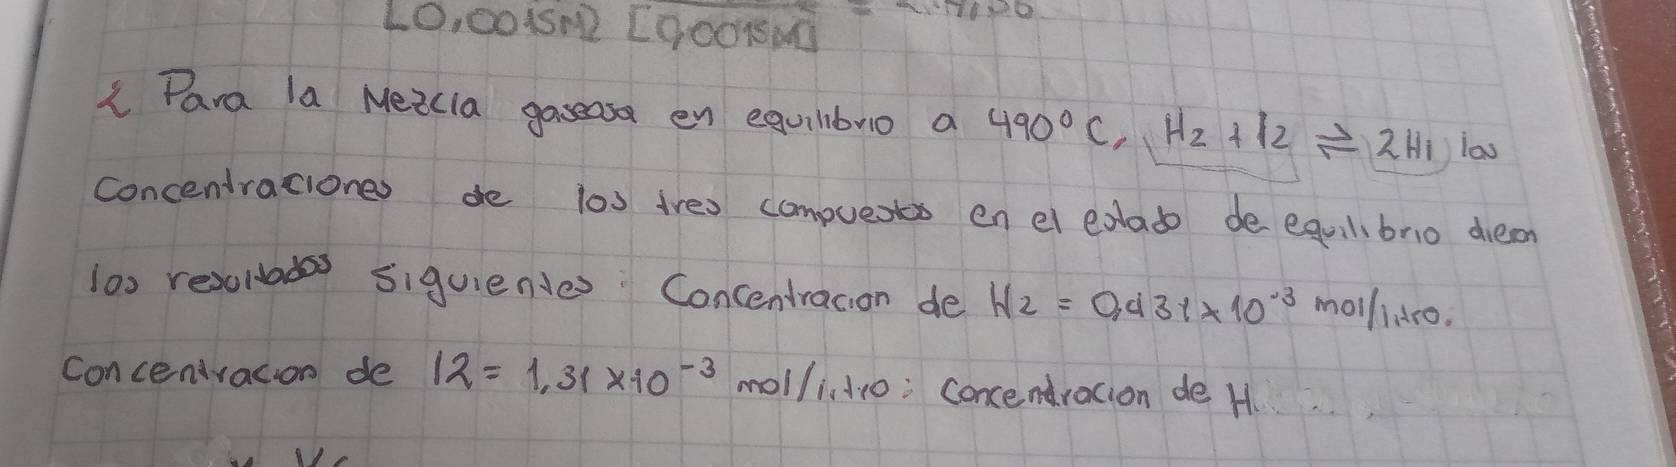 [0,0015M] [0,0015M] =
2 Para la Mezcla gaseosa en equilibrio a 490°C, H2 + I2 ⇌ 2Hi las
Concentraciones de los tres compuestos en el estado de equilibrio dieron
los resultados siguientes: Concentracion de H2 = 0,431x10⁻³ mol/litro.
concentracion de I2 = 1,31 x10⁻³ mol/litro: concentracion de H